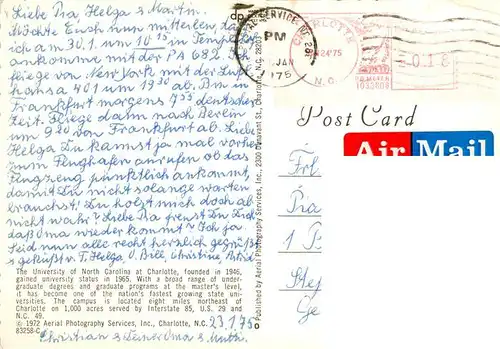 Liebe Pia, Helga u. Martin.
Möchte Euch nun mitteilen daß
ich am 30.1. um 10 15 in Tempelhof
ankomme mit der PA 682. Ich
fliege von New York mit der Luft
hansa 401 um 19 30 ab. Bin in
Frankfurt morgens 7 55 deutscher
Zeit. Fliege dann nach Berlin
um 9 20 von Frankfurt ab. Liebe
Helga Du kannst ja mal vorher
zum Flughafen anrufen ob das
Flugzeug pünktlich ankommt,
damit Du nicht solange warten
brauchst. Du holst mich doch ab
nicht wahr? Liebe Pia freust Du Dich
daß Oma wieder kommt? Ich ja.
Seid nun alle recht herzlich gegrüßt
u geküßt v. T. Helga, O. Bill, Christine,
The University of North Carolina at Charlotte, founded in 1946,
gained university status in 1965. With a broad range of under-
graduate degrees and graduate programs at the master's level,
it has become one of the nation's fastest growing state uni-
versities. The campus is located eight miles northeast of
Charlotte on 1,000 acres served by Interstate 85, U.S. 29 and
N.C. 49.
© 1972 Aerial Photography Services, Inc., Charlotte, N.C.
83258-C
23.1.75
Christian u. Oma u. Mutti.
Published by Aerial Photography Services, Inc., 2300 Dunavant St., Charlotte, N.C. 28203
dp
SERVICE
PM
JAN
1975
CHARLOTTE
N.C.
JAN24'75
0.18
P.B. METER
Post Card
Air Mail
Frl.
Pia
1 B
Ste
Ge